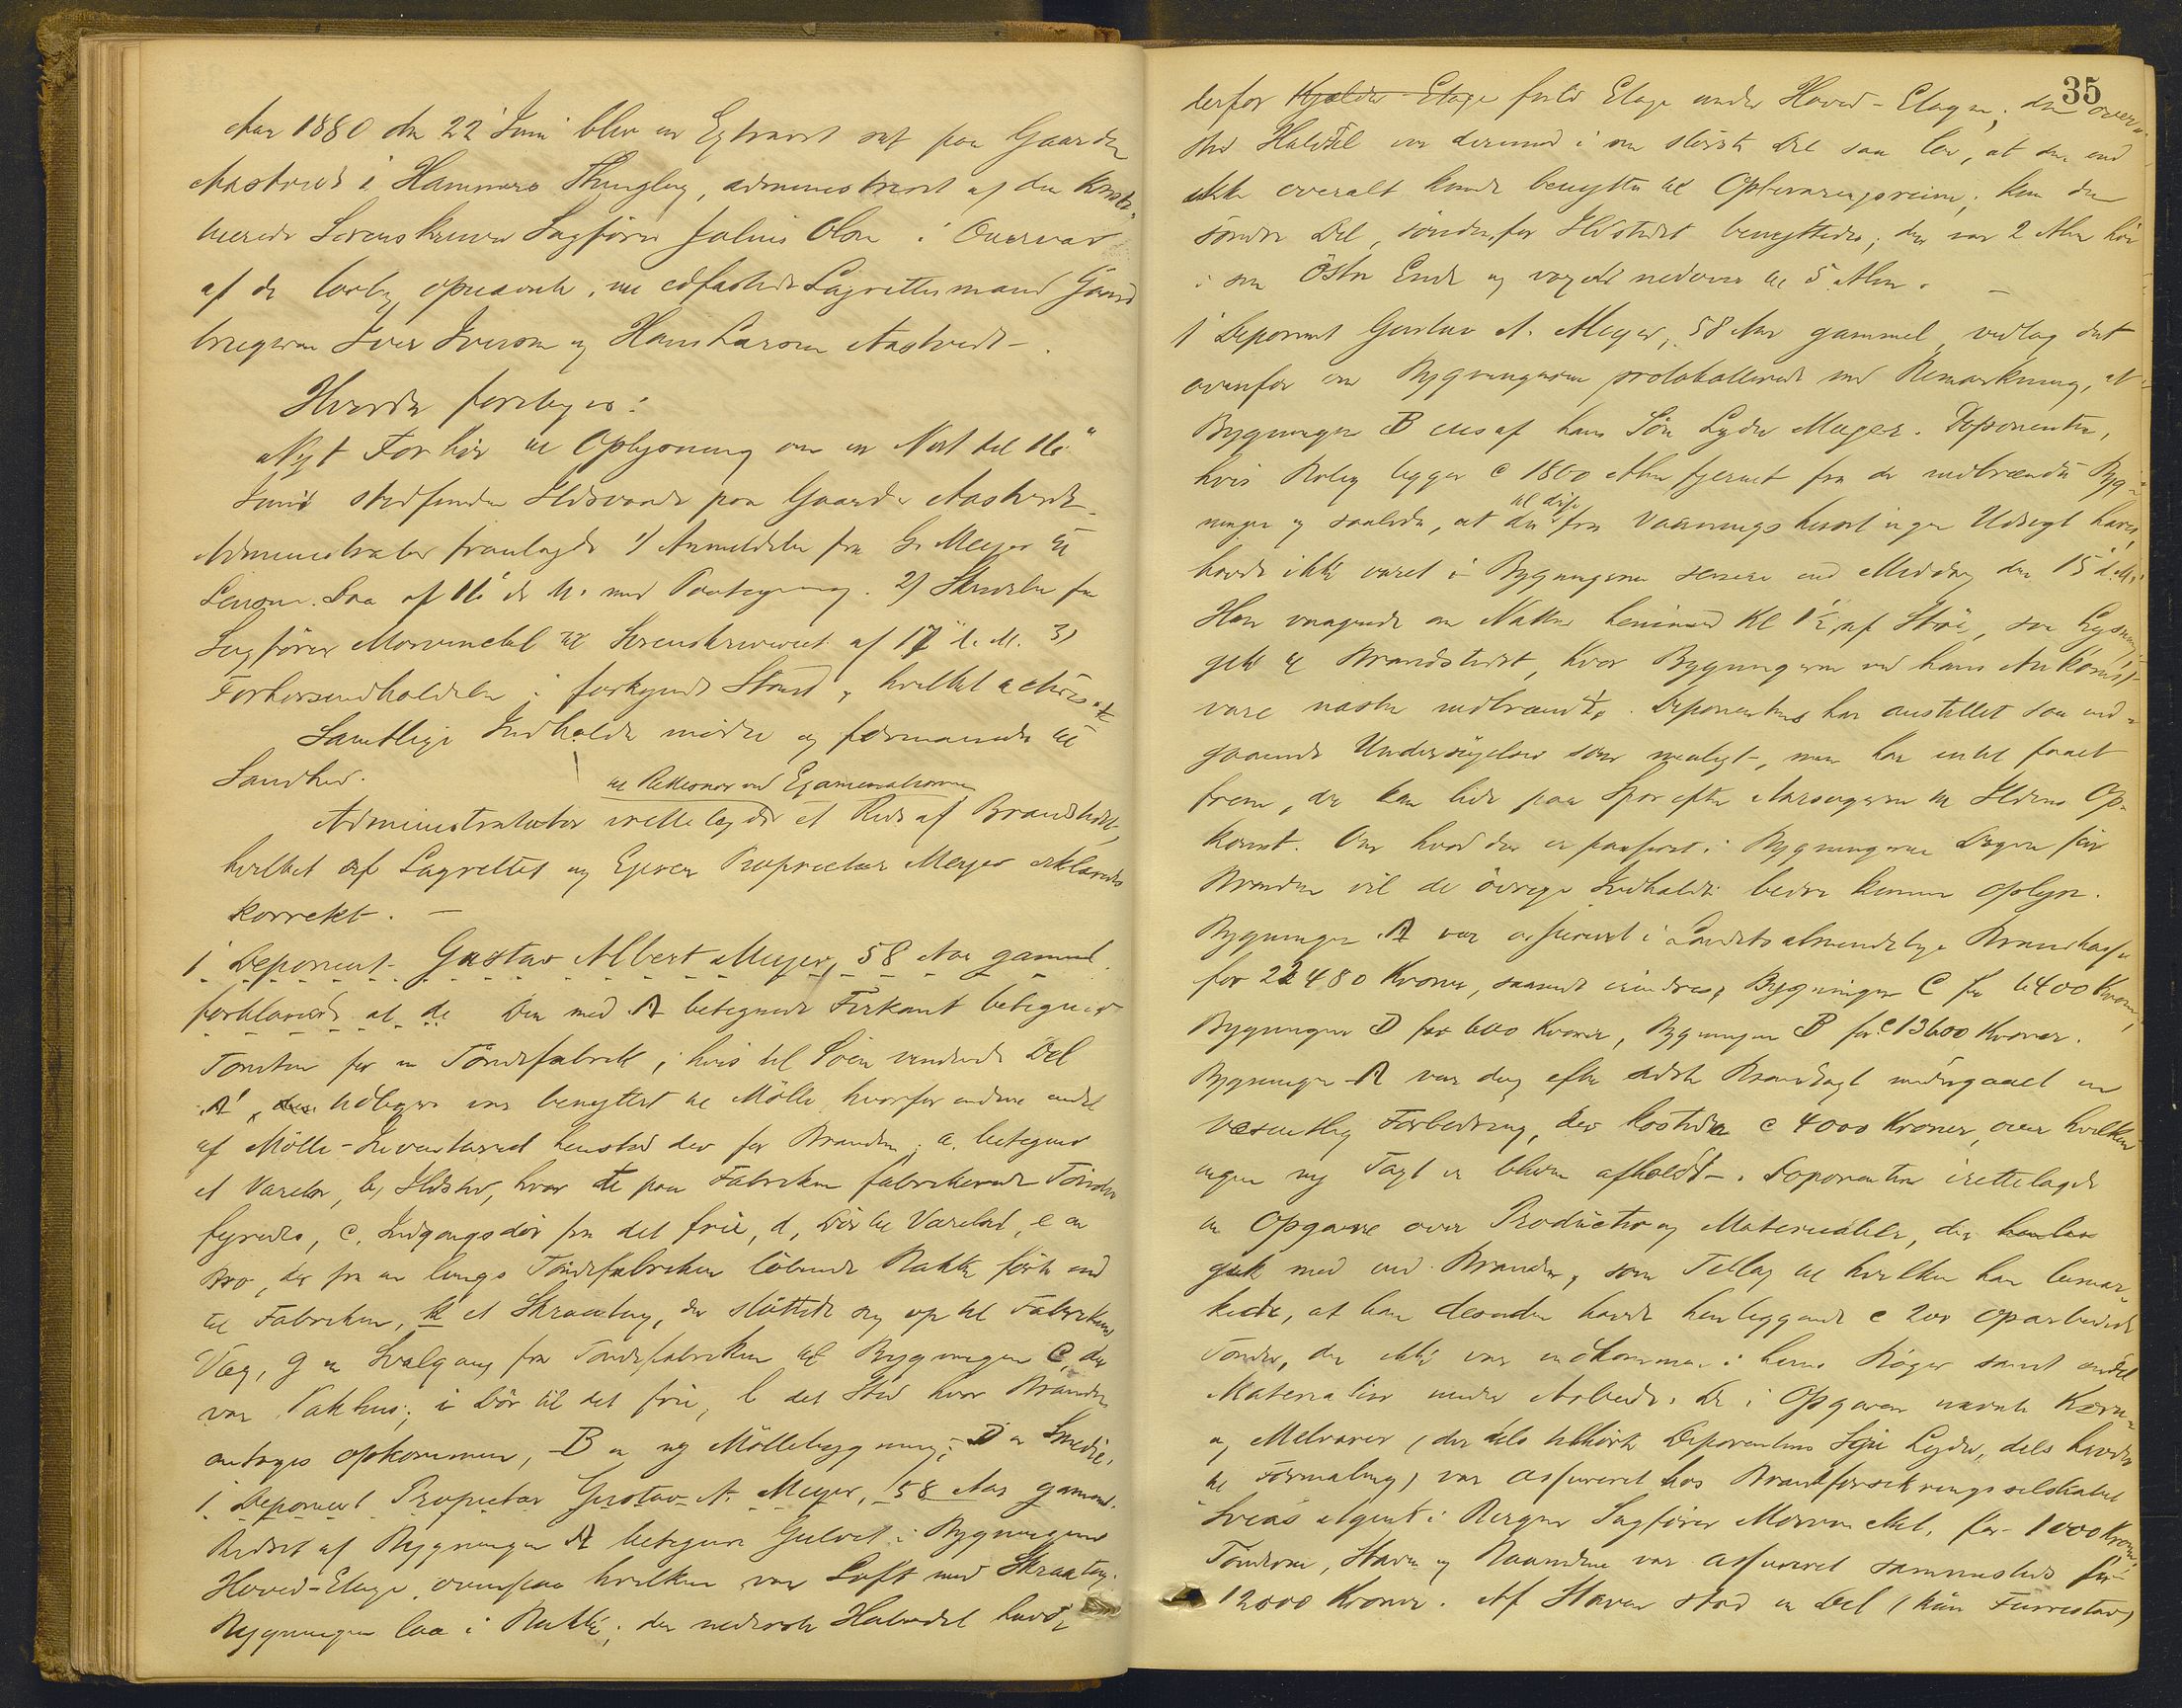 Aar 1880 den 22 Juni blev en Extraret sat paa Gaarden
Aastvedt i Hammers Thinglag, administreret af den konsti-
tuerede Sorenskriver Sagfører Julius Olsen i Overvær
af de lovlig opnævnte, nu edfæstede Lagrettesmænd Gaard
brugerne Iver Iversen og Hans Larsen Aastvedt.
Hvorda foretoges:
Nyt Forhør til Oplysning om en Nat til 16
Juni stedfunden Ildsvaade paa Gaarden Aastvedt.
Administrator fremlagde 1) Anmeldelse fra G. Meyer til
Lensm. af 16 ds M. med Paategning. 2) Skrivelse fra
Sagfører Morvinckel til Sorenskriveriet af 17 d. M. 3)
Forhørsindkaldelse i forkyndt Stand, hvilket
Samtlige Indkaldte mødte og formanedes til
Sandhed.
til Retledning ved Examinationen
Administrator irettelagde et Rids af Brandstedet,
hvilket af Lagrettet og Ejeren Proprietær Meyer erklæredes
korrekt. —
1 Deponent Gustav Albert Meyer, 58 Aar gammel.
forklarede at de Den med A betegnede Firkant betegner
Tomten for en Tøndefabrik, hvis til Søen vendende Del
A', den Udbygn. var benyttet til Mølle, hvorfor endnu endel
af Mølle-Inventariet henstod der før Branden; a. betegner
et Varelor, b, Ildsted, hvor de paa Fabriken fabrikerede Tønder
fyredes, c. Indgangsdør fra det frie, d, Dør til Varelad, e en
Bro, der fra en langs Tøndefabriken løbende Bakke førte ind
til Fabriken, k et Skraatag, der støttede sig op til Fabrikens
Væg, g en Svalgang fra Tøndefabriken til Bygningen C, der
var Pakhus; i Dør til det frie, l det Sted hvor Branden
antages opkommen, B en ny Møllebygning, D en Smedie.
1 Deponent Proprietær Gustav A. Meyer, 58 Aar gammel.
Ridset af Bygningen A betegner Gulvet i Bygningens
Hoved-Etage, ovenpaa hvilken var Loft med Skraatag.
Bygningen laa i Bakke; den nederste Halvdel havde
35
derfor Kjelder Etage fuld Etage under Hoved-Etagen; den øver-
ste Halvdel var derimod i sin største Del saa lav, at den end
ikke overalt kunde benyttes til Opbevaringsrum; kun den
søndre Del, søndenfor Ildstedet benyttedes; der var 2 Alen høi
i sin Østre Ende og voxede nedover til 5 Alen. —
1 Deponent Gustav A. Meyer, 58 Aar gammel, vedtog det
ovenfor om Bygningerne protokollerede med Bemærkning, at
Bygningen B eies af hans Søn Lyder Meyer. Deponenten,
hvis Bolig ligger c 1800 Alen fjernet fra de nedbrændte Byg-
til disse
ninger og saaledes, at der fra Vaaningshuset ingen Udsigt haves,
havde ikke været i Bygningerne senere end Middag den 15 d. M.
Han vaagnede om Natten henimod Kl 1½ af Støi, saa Lysning
gik til Brandstedet, hvor Bygningerne ved hans Ankomst
vare næsten nedbrændte. Deponenten har anstillet saa ind-
gaaende Undersøgelser som muligt, men har intet faaet
frem, der kan lede paa Spor efter Aarsagerne til Ildens Op-
komst. Om hvad der er passeret i Bygningerne Dagen før
Branden vil de øvrige Indkaldte bedre kunne oplyse.
Bygningen A var assureret i Landets almindelige Brandkasse
for 22480 Kroner, saavidt erindres, Bygningen C for 6400 Kroner,
Bygningen D for 600 Kroner, Bygningen B for c 13600 Kroner.
Bygningen A var dog efter sidste Brandtaxt undergaaet en
væsentlig Forbedring, der kostede c 4000 Kroner, over hvilken
ingen ny Taxt er bleven afholdt. Deponenten irettelagde
en Opgave over Producter og Materialier, der
gik med ved Branden, som Tillæg til hvilken han bemær-
kede, at han desuden havde henliggende c 200 oparbeidede
Tønder, der ikke var indkomne i hans Bøger samt endel
Materialier under Arbeide. De i Opgaven nævnte Korn-
og Melvarer (der dels tilhørte Deponentens Søn Lyder, dels havdes
til Formaling) var assureret hos Brandforsikringsselskabet
Sveas Agent i Bergen Sagfører Morvinckel, for 1000 Kroner.
Tønderne, Staver og Baandene var assureret sammesteds for
12000 Kroner. Af Staver stod en Del (kun Furrestav)